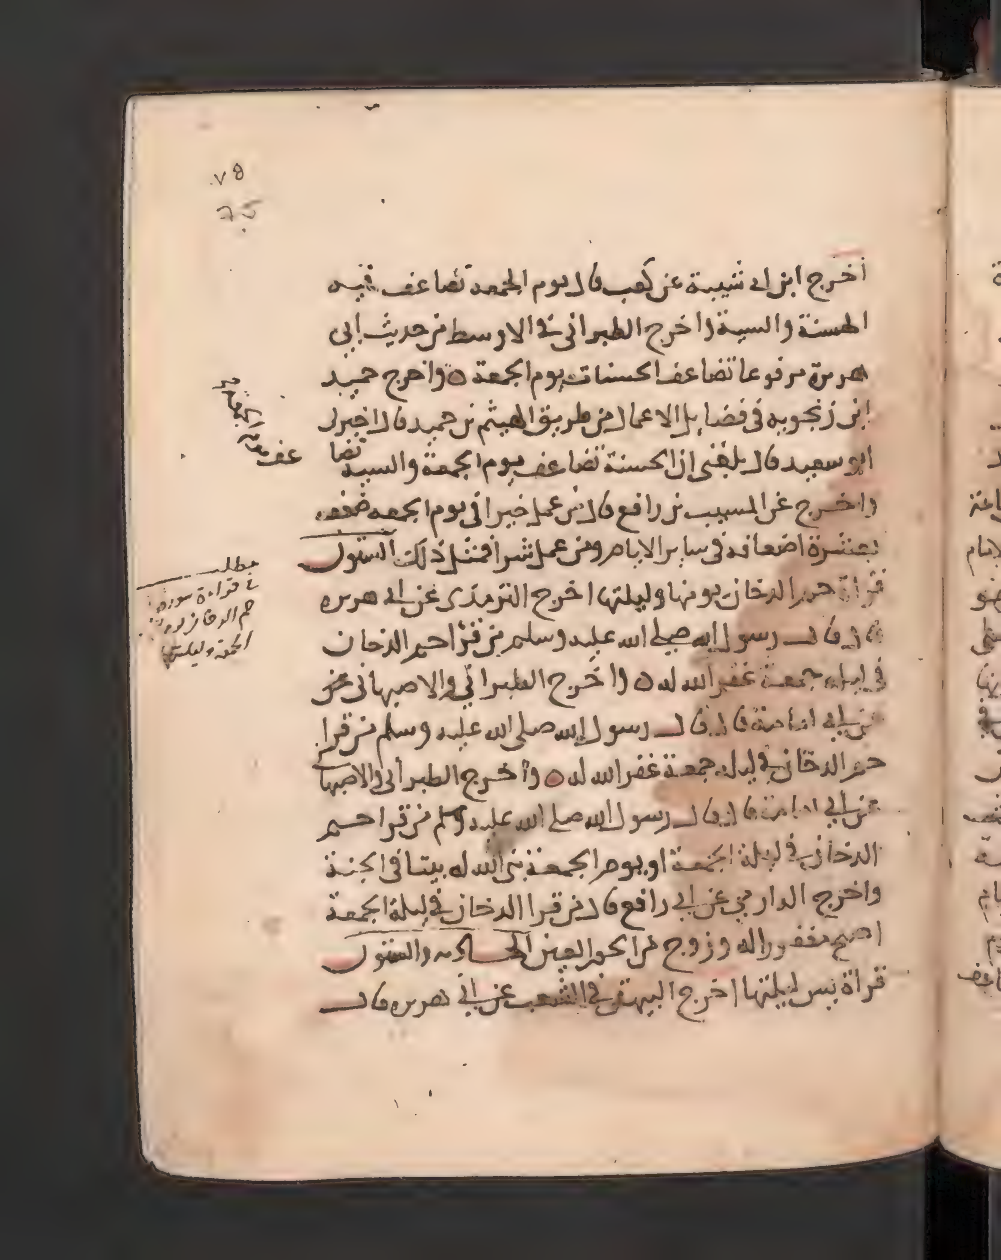 أخرج ابن ابي شيبة عن كعب قال يوم الجمعة تضاعف فيه
الحسنة والسية واخرج الطبراني في الاوسط من حديث أبي
هريرة مرفوعا تضاعف الحسنات يوم الجمعة ه واخرج حميد
ابن زنجويه في فضايل الاعمال من طريق الهيثم بن حميد قال اخبرني
ابو سعيد قال بلغني ان الحسنة تضاعف يوم الجمعة والسية تضا
عف يوم الجمعة
واخرج عن المسيب بن رافع قال من عمل خيرا في يوم الجمعة ضعف
بعشرة اضعافه في ساير الايام ومن عمل شرا فمثل ذلك الستون
قراة حم الدخان يومها وليلتها اخرج الترمذي عن ابي هريرة
قال قال رسول الله صلى الله عليه وسلم من قرا حم الدخان
في ليلة جمعة غفر الله له ه واخرج الطبراني والاصبهاني عن
عن ابي امامة قال قال رسول الله صلى الله عليه وسلم من قرا
حم الدخان في ليلة جمعة غفر الله له ه واخرج الطبراني والاصبها
عن ابي امامة قال قال رسول الله صلى الله عليه وسلم من قرا حم
الدخان في ليلة الجمعة او يوم الجمعة بنى الله له بيتا في الجنة
واخرج الدارمي عن ابي رافع قال من قرا الدخان في ليلة الجمعة
اصبح مغفورا له وزوج من الحور العين الحادية والستون
قراة يس ليلتها اخرج البيهقي في الشعب عن ابي هريرة قال
مطلب
في قراءة سورة
حم الدخان يوم
الجمعة وليلتها